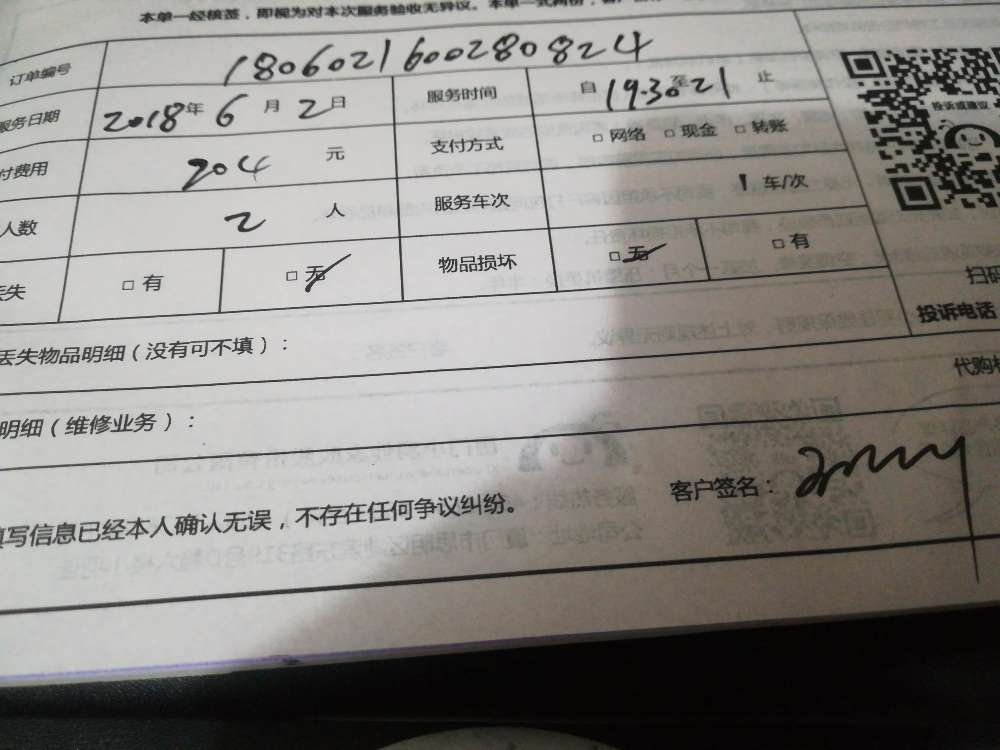 本单一经核签，即视为对本次服务验收无异议。本单一式两份，客户
订单编号 180602160028082 4
服务日期 2018年 6月 2日 服务时间 自 19:30至21 止
付费用 204 元 支付方式 □ 网络 □ 现金 □ 转账
人数 2 人 服务车次 1 车/次
丢失 □ 有 □ 无 物品损坏 □ 无 □ 有
投诉或建议
扫码
投诉电话
丢失物品明细（没有可不填）：
代购
明细（维修业务）：
填写信息已经本人确认无误，不存在任何争议纠纷。 客户签名：